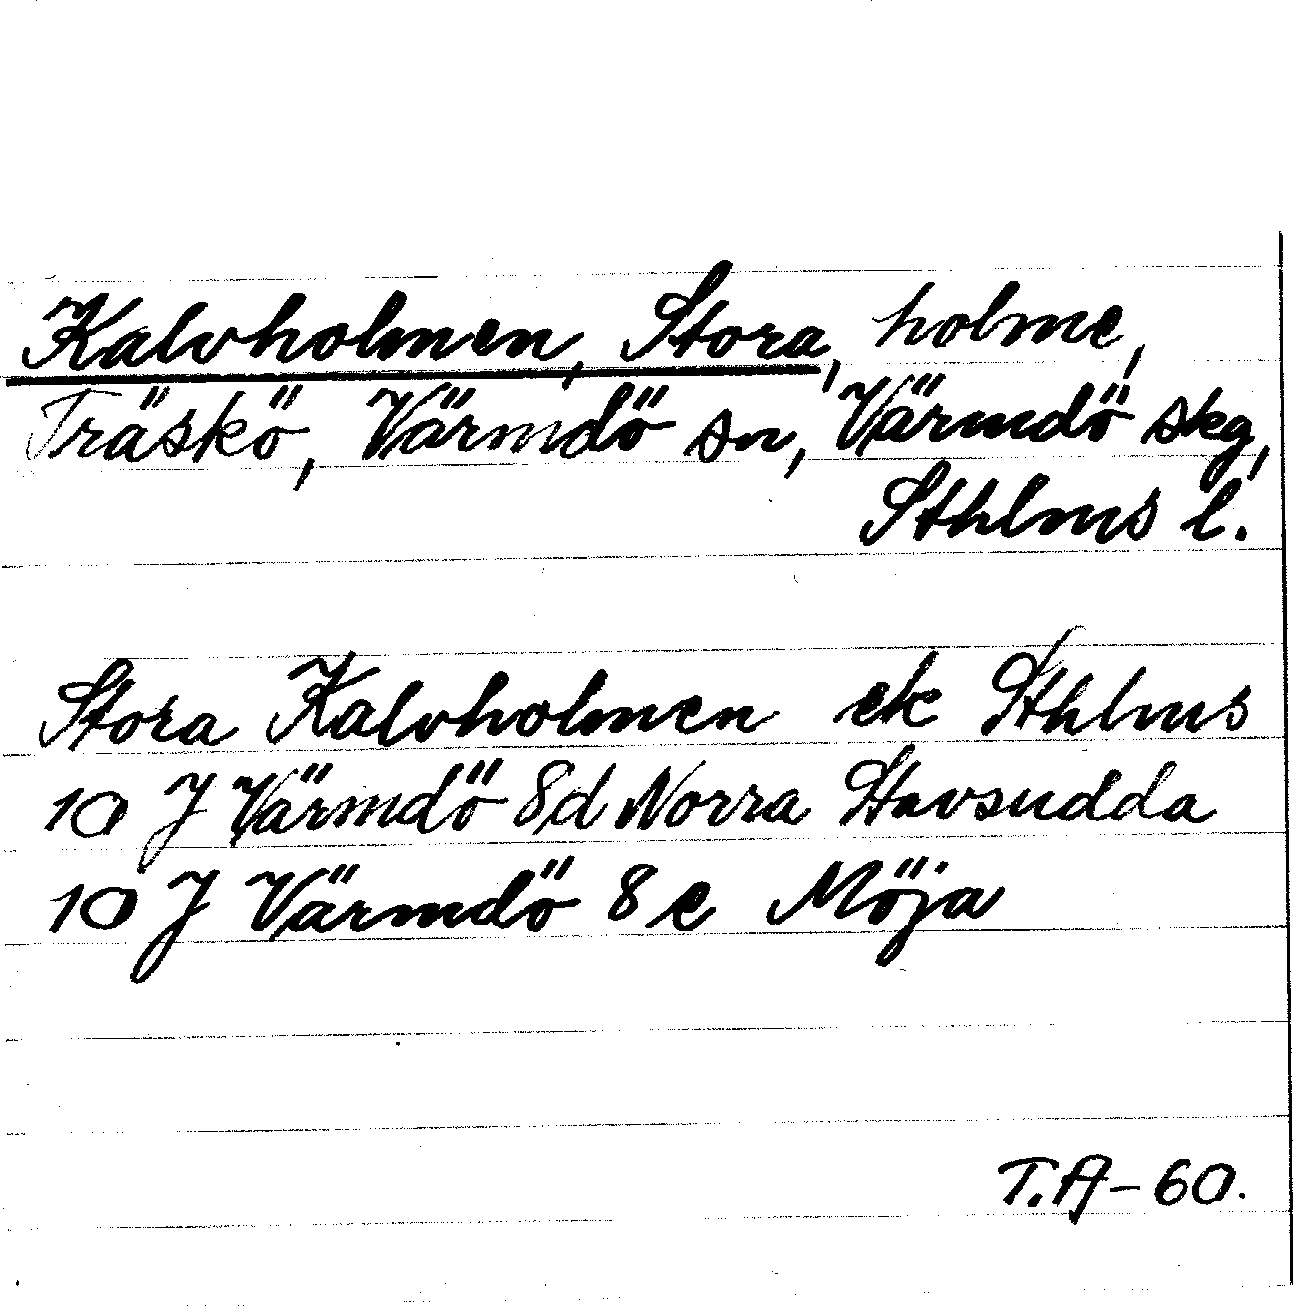 Kalvholmen, Stora, holme,
Träskö, Värmdö sn, Värmdö skg,
Sthlms l.
Stora Kalvholmen ek Sthlms
10 J Värmdö 8d Norra Stavsudda
10 J Värmdö 8e Möja
T.A-60.